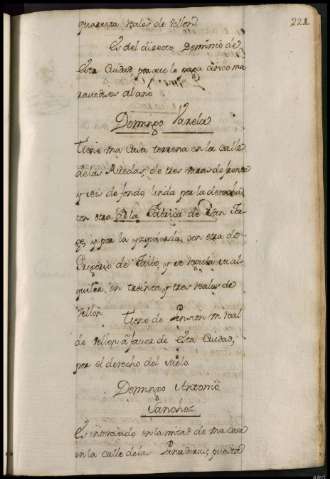 221
quarenta reales de vellon
Es del directo Dominio de
esta Ciudad, porque le paga cinco ma
ravedises al año
Domingo Varela
Tiene una Casa terrena en la calle
de las Ruedas, de tres varas de frente
y seis de fondo, linda por la derecha
con otra de la Fabrica de
y por la izquierda, con otra de
de y se regula su al
quiler, en treinta y tres reales de
vellon. Tiene de Pension un real
de vellon a favor de esta Ciudad,
por el derecho del suelo
Domingo Antonio
Sanchez
Es interesado en la mitad de una casa
en la calle de la